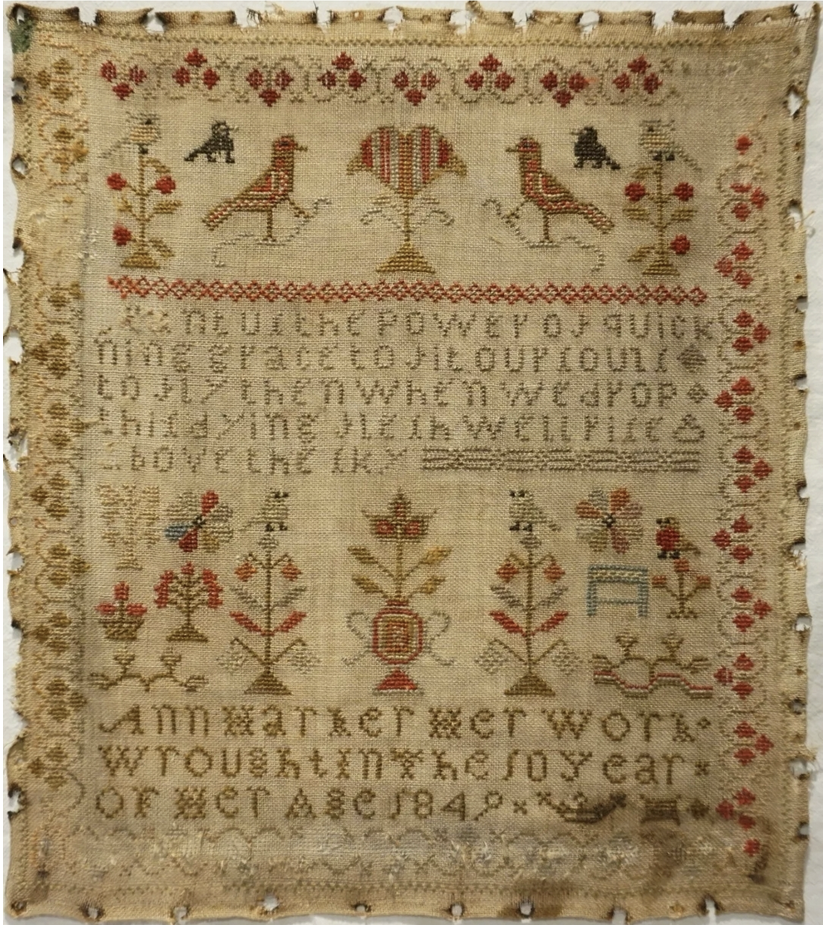 us the power of quick
ning grace to fit our souls
to fly then when we drop
this dying flesh well rise
above the sky
Ann Harker Her work
wrought In The 10 year
OF Her Age 1849